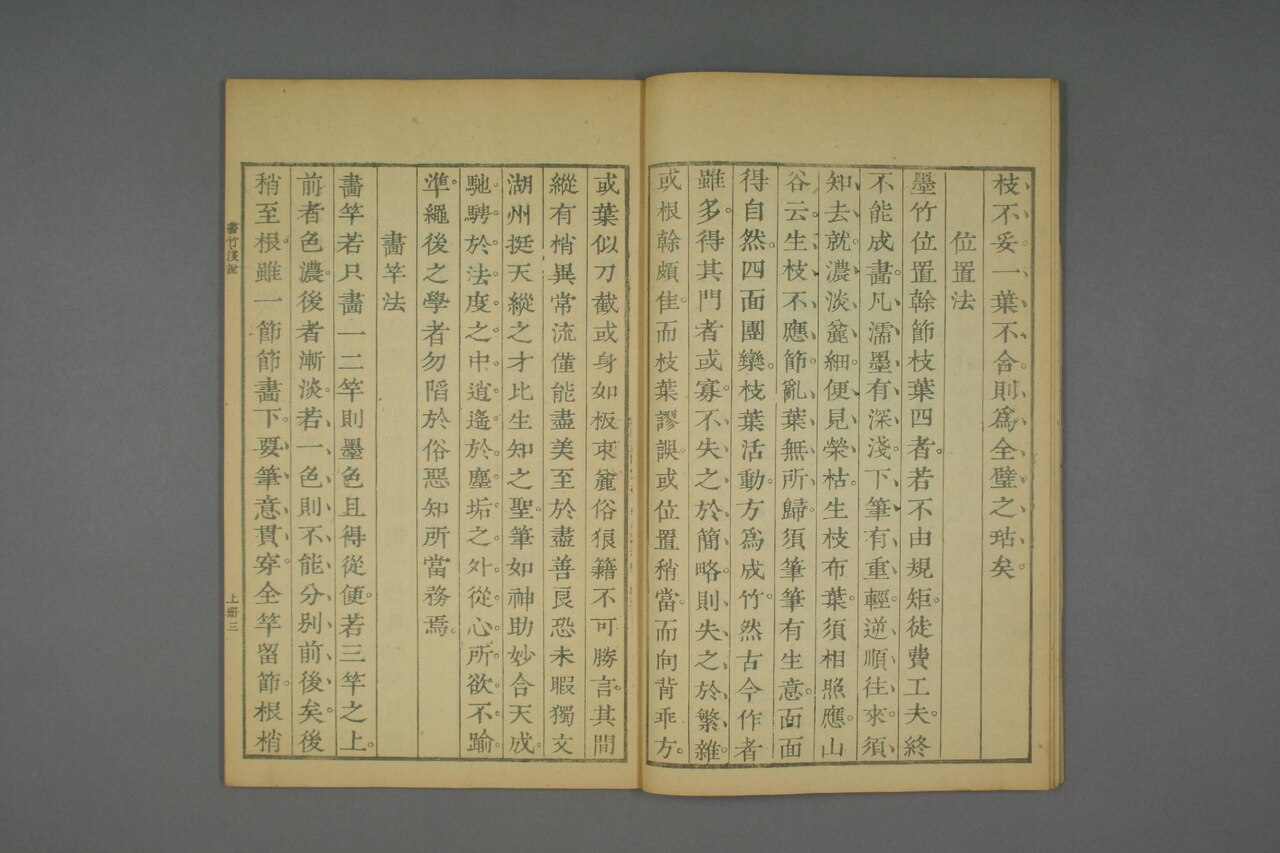 枝不妥一葉不合則爲全璧之玷矣
位置法
墨竹位置榦節枝葉四者若不由規矩徒費工夫終
不能成畵凡濡墨有深淺下筆有重輕逆順往來須
知去就濃淡麄細便見榮枯生枝布葉須相照應山
谷云生枝不應節亂葉無所歸須筆筆有生意面面
得自然四面團欒枝葉活動方爲成竹然古今作者
雖多得其門者或寡不失之於簡略則失之於繁雜
或根榦頗佳而枝葉謬誤或位置稍當而向背乖方
或葉似刀截或身如板束麄俗狼籍不可勝言其閒
縱有梢異常流僅能盡美至於盡善良恐未暇獨文
湖州挺天縱之才比生知之聖筆如神助妙合天成
馳騁於法度之中逍遙於塵垢之外從心所欲不踰
準繩後之學者勿陷於俗惡知所當務焉
畵竿法
畵竿若只畵一二竿則墨色且得從便若三竿之上
前者色濃後者漸淡若一色則不能分別前後矣後
稍至根雖一節節畵下要筆意貫穿全竿留節根梢
畵竹淺說
上册三